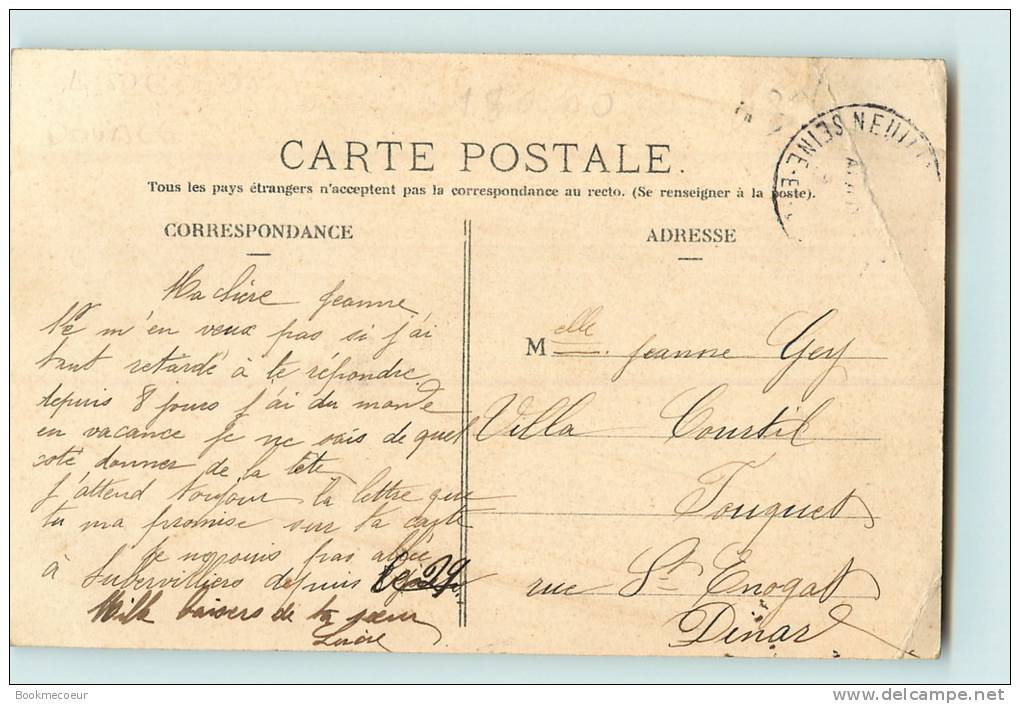 CARTE POSTALE.
Tous les pays étrangers n'acceptent pas la correspondance au recto. (Se renseigner à la poste).
CORRESPONDANCE
Ma chère Jeanne
Ne m'en veux pas si j'ai
tant retardé à te répondre.
depuis 8 jours j'ai du monde
en vacance je ne sais de quel
coté donner de la tête
j'attend toujour la lettre que
tu ma promise sur ta carte
Je
pas
à Aubervilliers depuis le 29
Mille baisers de ta sœur
ADRESSE
Melle. Jeanne Gey
Villa Courtil
Touquet
rue St Enogat
Dinard
SEINE NEUILL
Bookmecoeur
delcampe.net